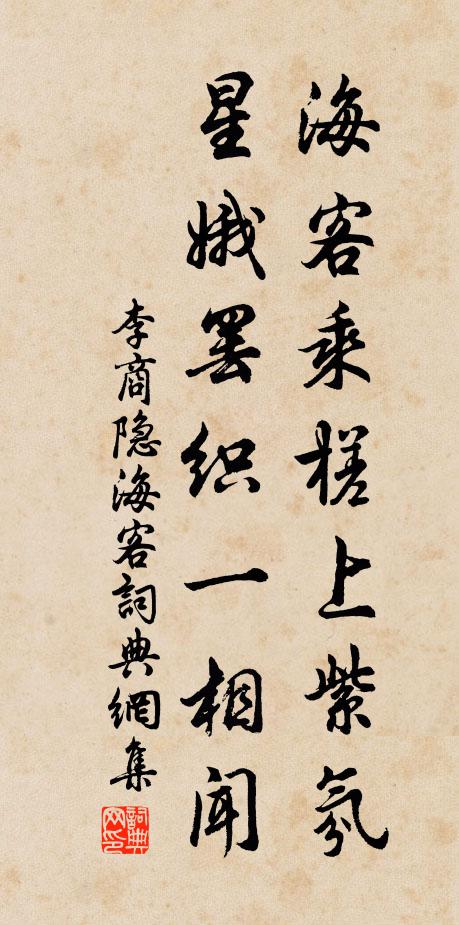 海客乘槎上紫氛
星娥罢织一相闻
李商隐海客詞典網集
詞典网印